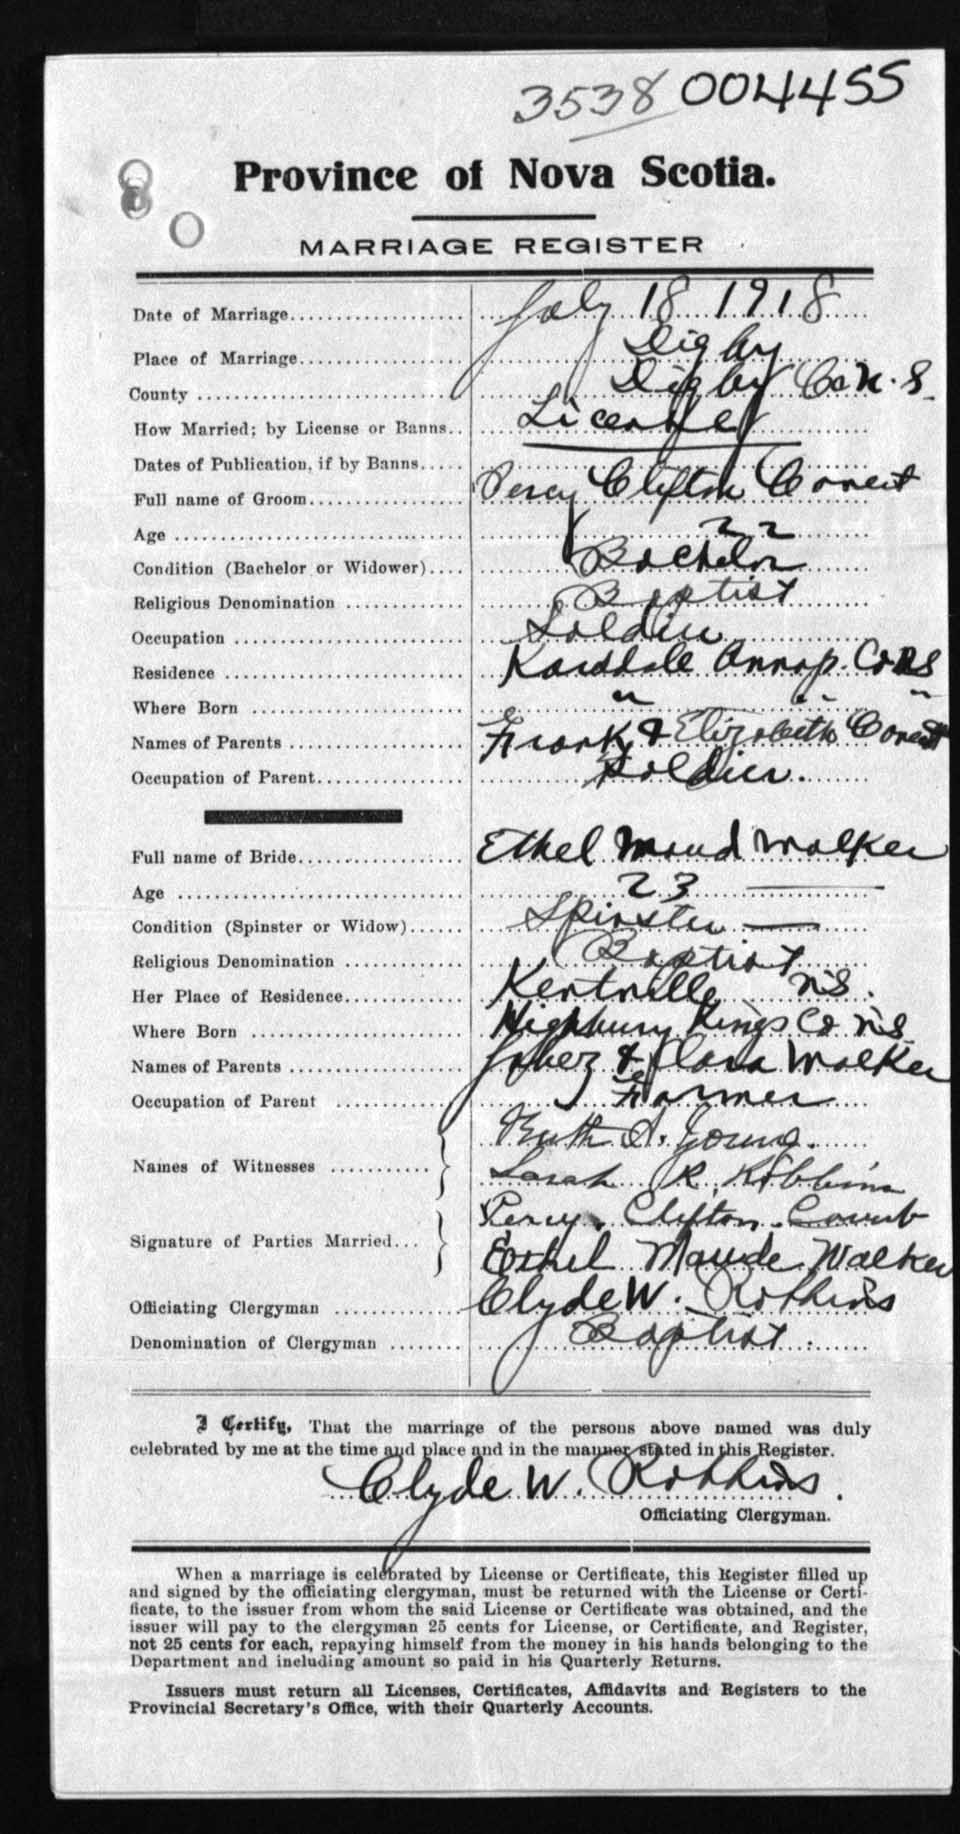 3538 004455
Province of Nova Scotia.
MARRIAGE REGISTER
Date of Marriage July 18 1918
Place of Marriage Digby
County Digby Co N.S.
How Married; by License or Banns License
Dates of Publication, if by Banns
Full name of Groom Percy Clifton Covert
Age 22
Condition (Bachelor or Widower) Bachelor
Religious Denomination Baptist
Occupation Soldier
Residence Karsdale Annap. Co NS
Where Born " " "
Names of Parents Frank & Elizabeth Covert
Occupation of Parent Soldier.
Full name of Bride Ethel Maud Walker
Age 23
Condition (Spinster or Widow) Spinster
Religious Denomination Baptist
Her Place of Residence Kentville NS.
Where Born Highbury Kings Co NS
Names of Parents Jabez & Clara Walker
Occupation of Parent Farmer
Ruth A. Young.
Names of Witnesses
Sarah R. Robbins
Percy Clifton Covert
Signature of Parties Married
Ethel Maude Walker
Officiating Clergyman Clyde W. Robbins
Denomination of Clergyman Baptist.
I Certify, That the marriage of the persons above named was duly
celebrated by me at the time and place and in the manner stated in this Register.
Clyde W. Robbins.
Officiating Clergyman.
When a marriage is celebrated by License or Certificate, this Register filled up
and signed by the officiating clergyman, must be returned with the License or Certi-
ficate, to the issuer from whom the said License or Certificate was obtained, and the
issuer will pay to the clergyman 25 cents for License, or Certificate, and Register,
not 25 cents for each, repaying himself from the money in his hands belonging to the
Department and including amount so paid in his Quarterly Returns.
Issuers must return all Licenses, Certificates, Affidavits and Registers to the
Provincial Secretary's Office, with their Quarterly Accounts.